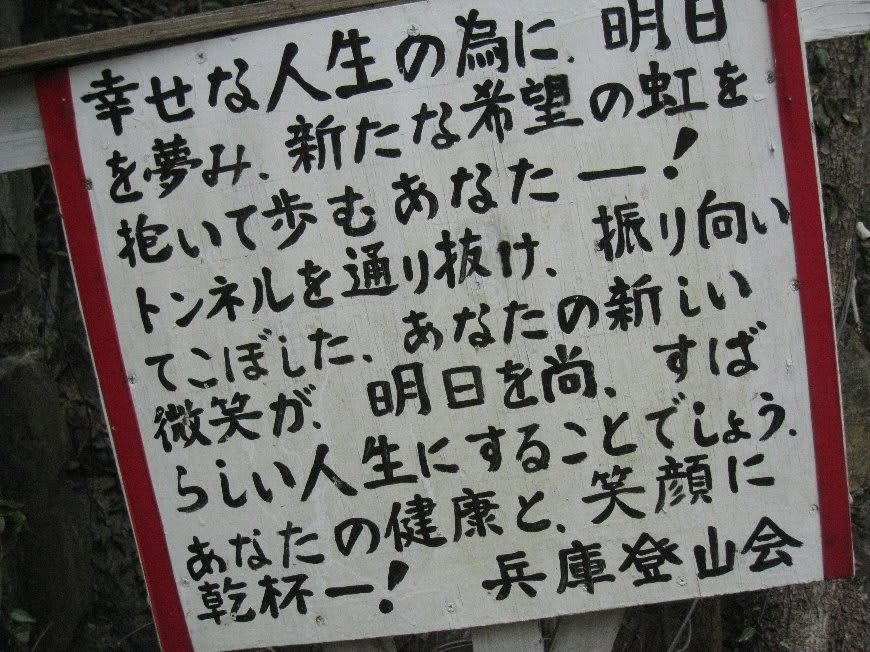 幸せな人生の為に、明日
を夢み、新たな希望の虹を
抱いて歩むあなたー!
トンネルを通り抜け、振り向い
てこぼした、あなたの新しい
微笑が、明日を尚、すば
らしい人生にすることでしょう.
あなたの健康と、笑顔に
乾杯ー! 兵庫登山会